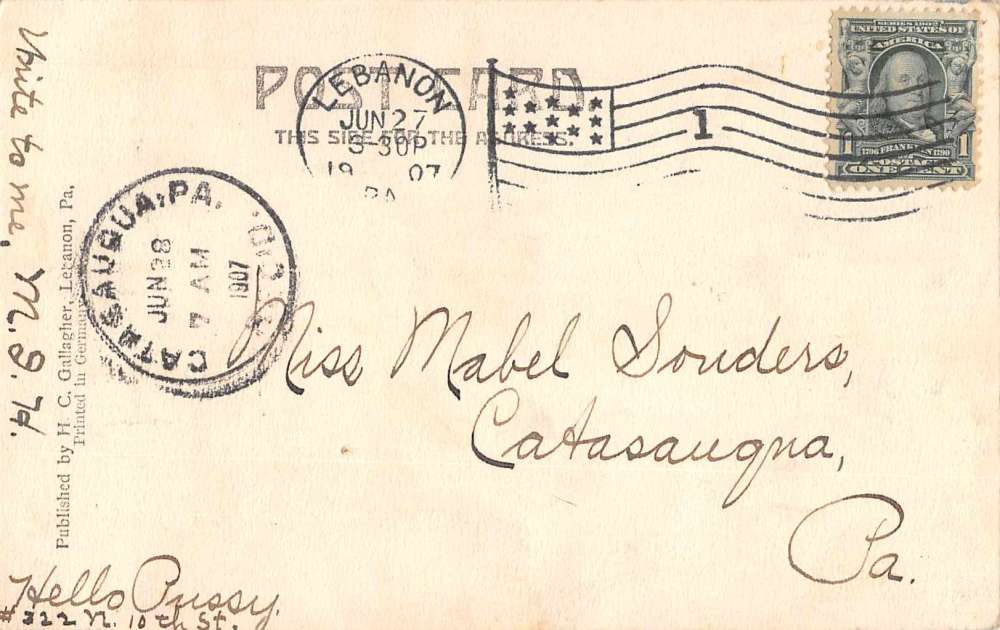 POST CARD
THIS SIDE FOR THE ADDRESS.
LEBANON
JUN 27
3-30P
19 07
PA
1
SERIES 1902
UNITED STATES OF
AMERICA
1706 FRANKLIN 1790
1 POSTAGE 1
ONE CENT
CATASAUQUA, PA.
JUN 28
7 AM
1907
Miss Mabel Souders,
Catasauqua,
Pa.
Write to me, M. G. H.
Published by H. C. Gallagher, Lebanon, Pa.
Printed in Germany.
Hello Pussy.
# 322 N. 10th St.